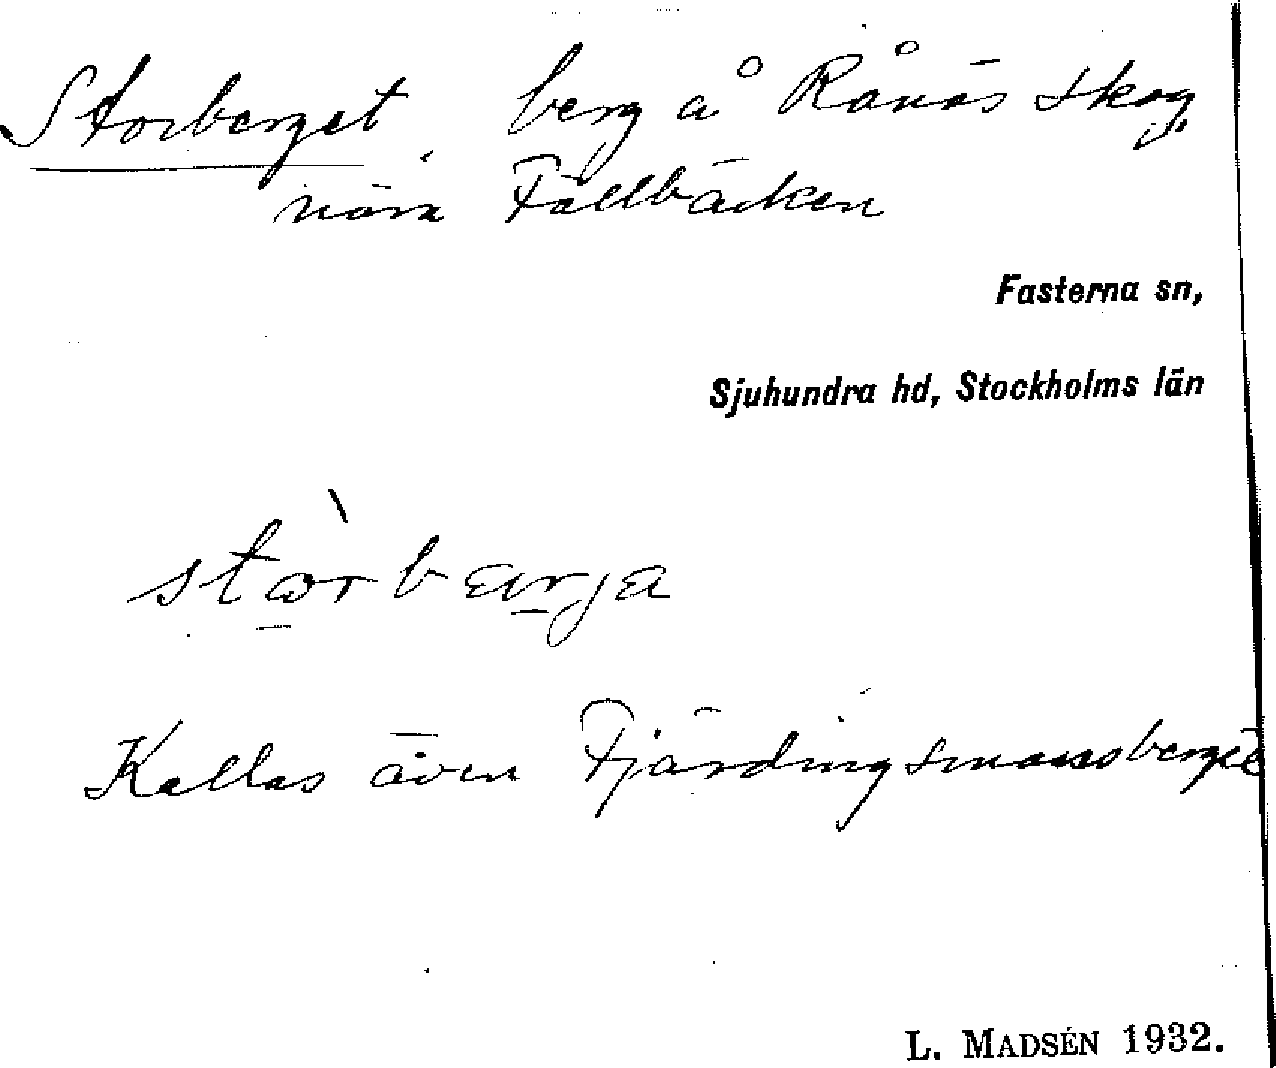 Storberget, berg å Rånäs skog,
nära Fallbäcken
Fasterna sn,
Sjuhundra hd, Stockholms län
Kallas även Fjärdingsmansberget
L. MADSÉN 1932.